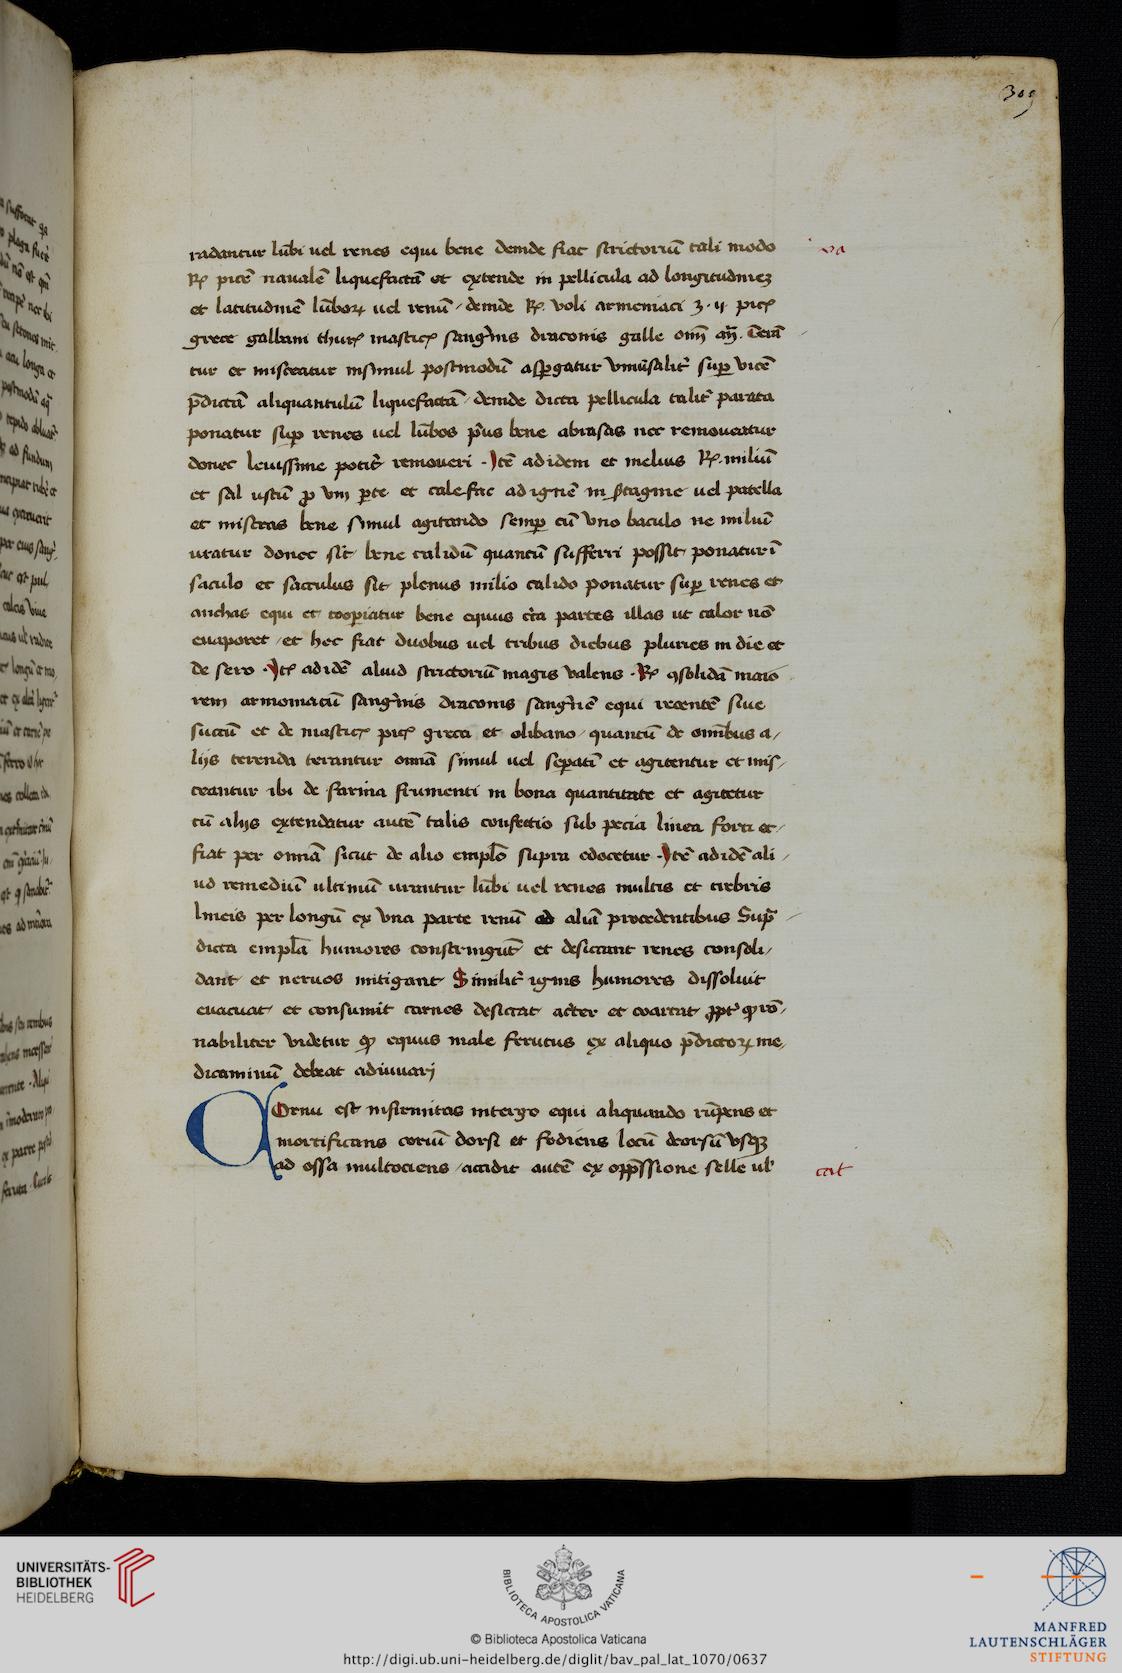 309
radantur lūbi uel renes equi bene deinde fiat strictoriū tali modo
℞ picē naualē liquefactā et extende in pellicula ad longitudinez
et latitudinē lūboꝝ uel renū deinde ℞. voli armeniaci ʒ · ij picꝭ
grece galbani thurꝭ masticꝭ sang̃nis draconis galle om̄ añ. Terā
tur et misceatur insimul postmodū asꝑgatur vniūsalit᷑ suꝑ picē
p̄dictā aliquantulū liquefactā deinde dicta pellicula talit᷑ parata
ponatur suꝑ renes uel lūbos p᷑us bene abrasas nec remoueatur
donec leuissime potit᷑ remoueri · Itē ad idem et melius ℞. miliū
et sal ustū ꝓ vna ꝑte et calefac ad ignē in ſtagnie uel patella
et misceas bene simul agitando semꝑ cū vno baculo ne miliū
uratur donec sit bene calidū quantū sufferri possit ponatur ī
saculo et sacculus sit plenus milio calido ponatur suꝑ renes et
anchas equi et cooꝑiatur bene equus c᷑ca partes illas ut calor nō
euaporet et hec fiat duobus uel tribus diebus pluries in die et
de sero · Itꝭ ad idē aliud strictoriū magis valens · ℞ ꝯsolidā maio
rem armoniacū sang̃nis draconis sang̃nē equi recentē siue
succū et de masticꝭ picꝭ greca et olibano quantū de om̄ibus a
lijs terenda terantur omā simul uel seꝑati et agitentur et mis
ceantur ibi de farina frumenti in bona quantitate et agitetur
cū alijs extendatur autē talis confectio sub pecia linea forti et
fiat per omā sicut de alio emplō supra edocetur · Itē ad idē ali
ud remediū ultimū urantur lūbi uel renes multis et crebris
lineis per longū ex vna parte renū ad aliā procedentibus Sup᷑
dicta emplā humores constringūt et desiccant renes consoli
dant et neruos mitigant Similit᷑ ignis humores dissoluit
euacuat et consumit carnes desiccat acriter et coartat ꝓpt᷑ ꝙ rō
nabiliter videtur ꝙ equus male ferutus ex aliquo p̄dictoꝝ me
dicaminū debeat adiuuarj
Cornu est infirmitas in tergo equi aliquando rūpens et
mortificans coriū dorsi et fodiens locū deorsū vsqꝫ
ad ossa multociens accidit autē ex opp̄ssione selle ul᷑
cat
UNIVERSITÄTS-
BIBLIOTHEK
HEIDELBERG
BIBLIOTECA APOSTOLICA VATICANA
© Biblioteca Apostolica Vaticana
http://digi.ub.uni-heidelberg.de/diglit/bav_pal_lat_1070/0637
MANFRED
LAUTENSCHLÄGER
STIFTUNG